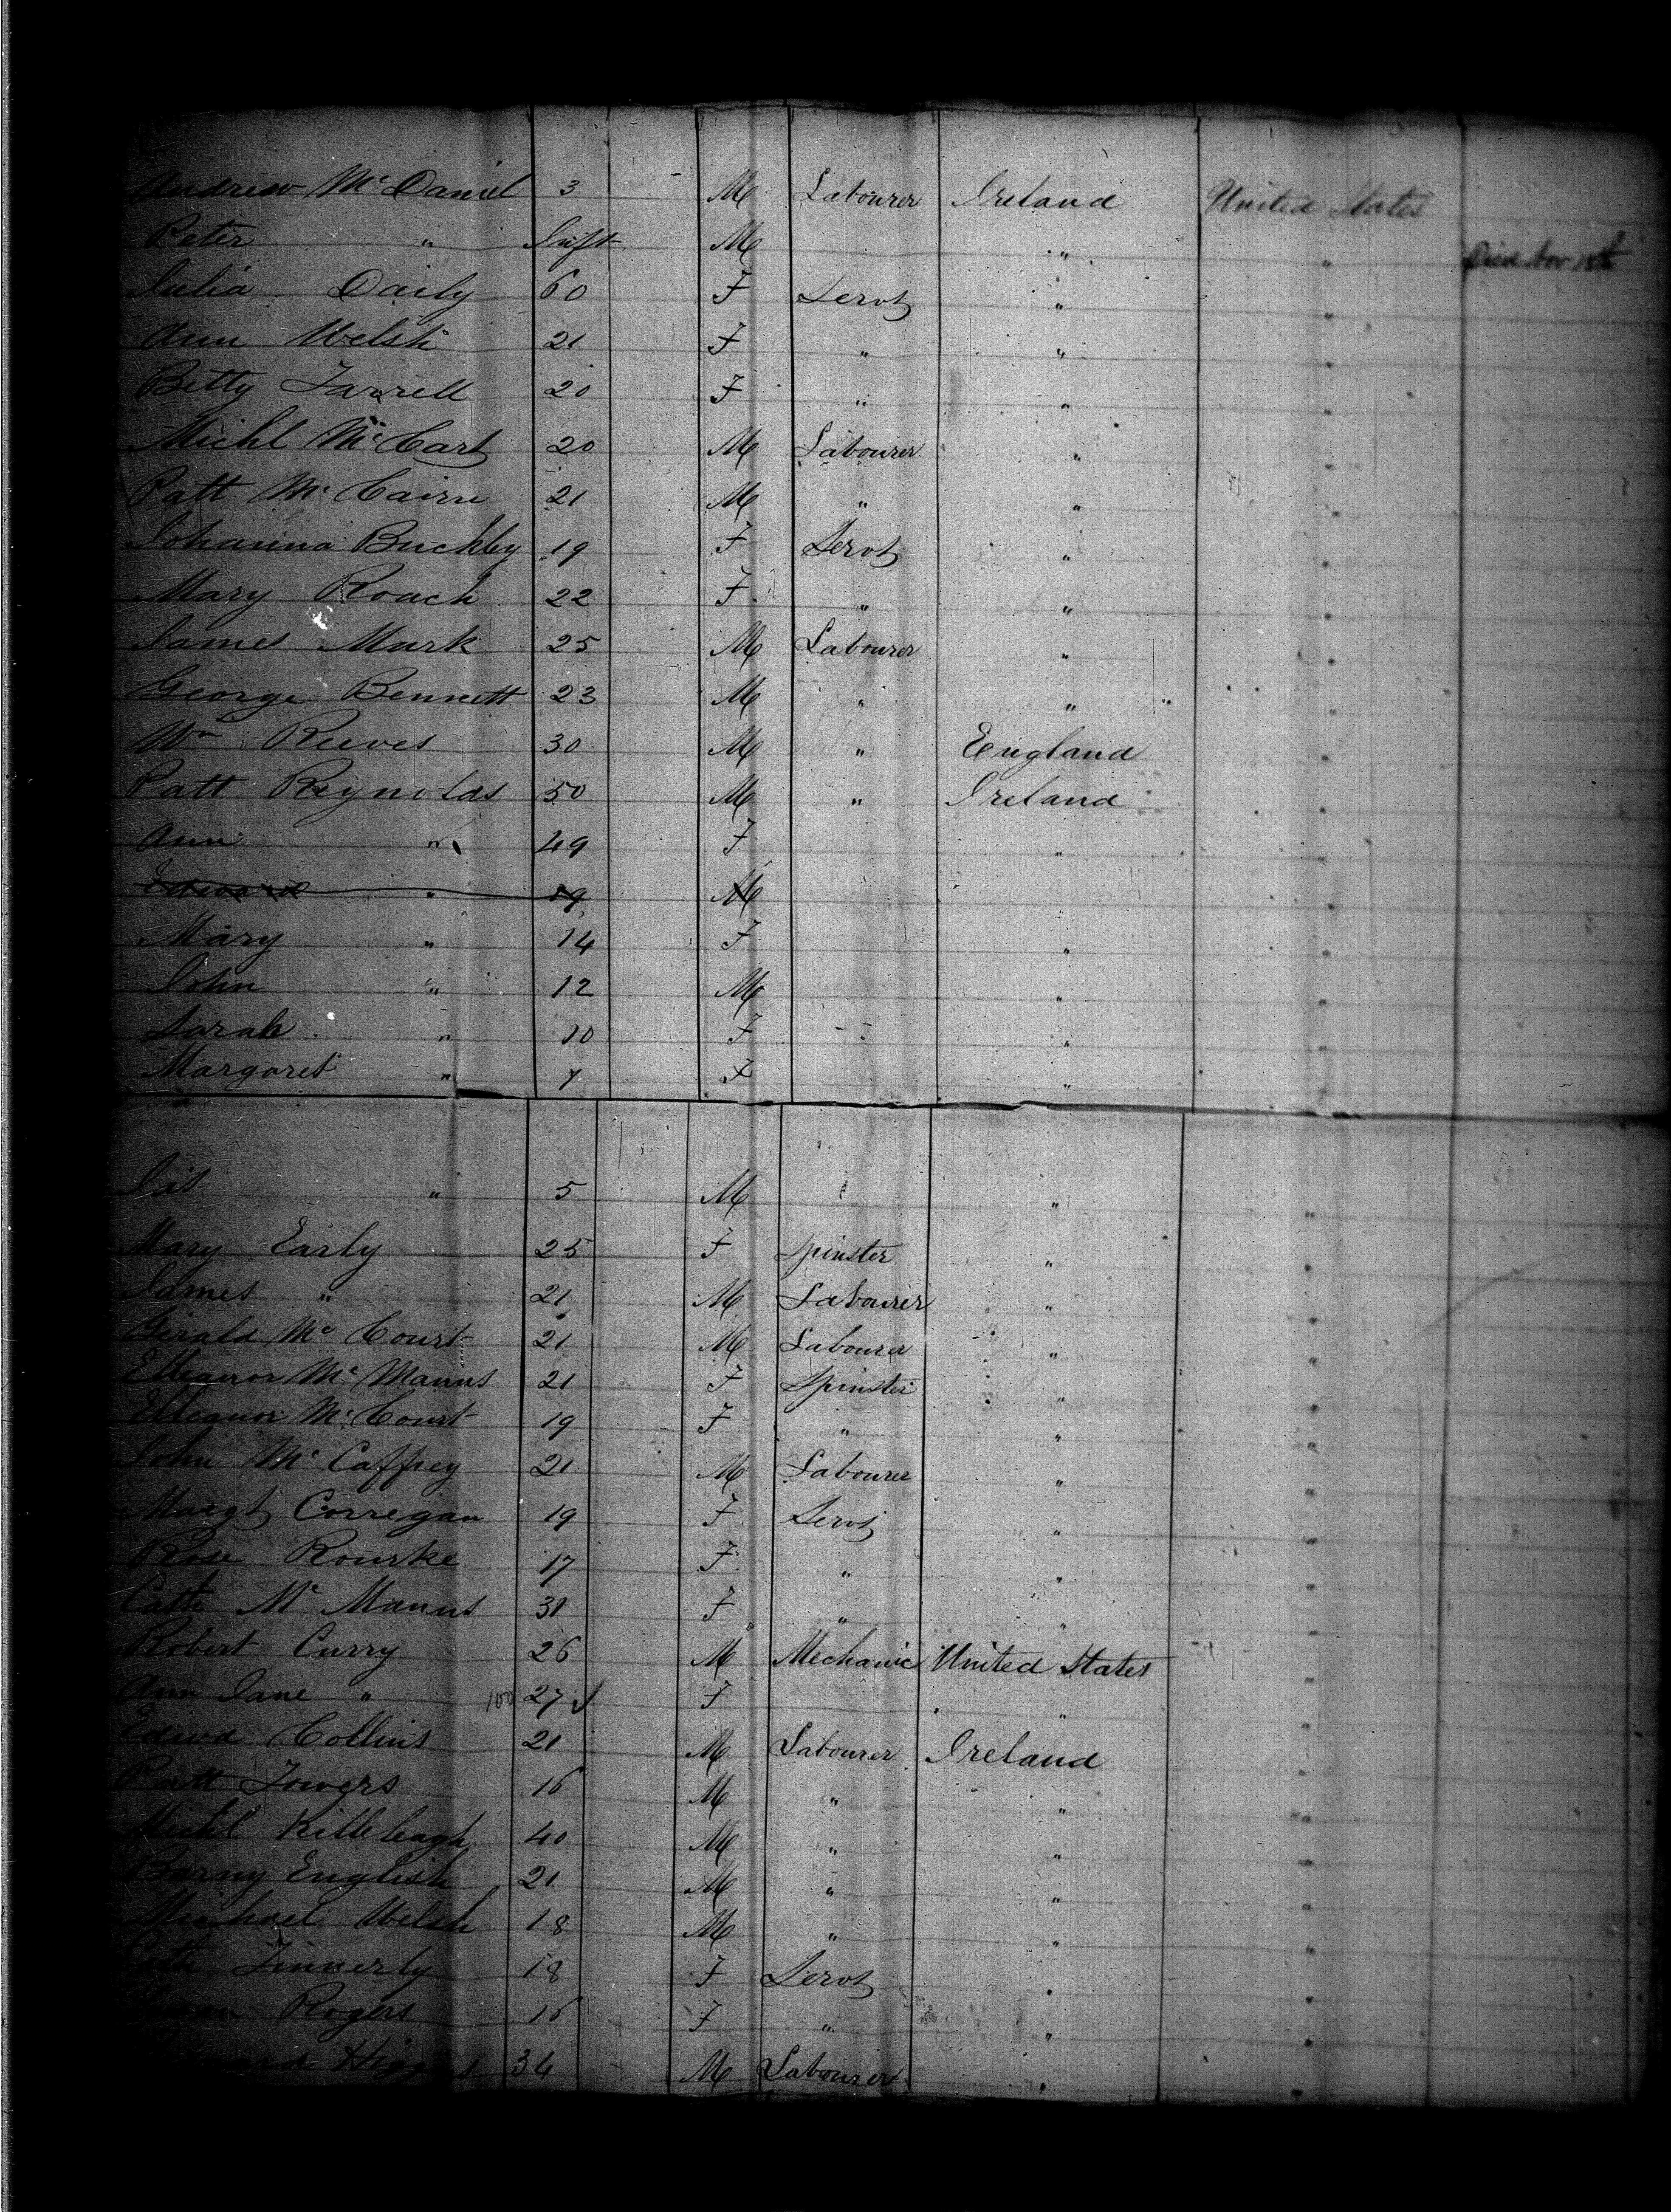 Andrew Mc Daniel 3 M Labourer Ireland United States
Peter " Inft M " " Died Nov 18th
Julia Daily 60 F Servt " "
Ann Welsh 21 F " " "
Betty Farrell 20 F " " "
Michl Mc Cart 20 M Labourer " "
Patt Mc Cairn 21 M " " "
Johanna Buckley 19 F Servt " "
Mary Roach 22 F " " "
James Murk 25 M Labourer " "
George Bennett 23 M " " "
Wm Reeves 30 M " England "
Patt Reynolds 50 M " Ireland "
Ann " 49 F " "
Edward " 19 M "
Mary " 14 F " "
John " 12 M " "
Sarah " 10 F " "
Margaret " 7 F " "
Jas " 5 M " "
Mary Early 25 F Spinster " "
James " 21 M Labourer " "
Gerald Mc Court 21 M Labourer " "
Elleanor Mc Manus 21 F Spinster " "
Elleanor Mc Court 19 F " " "
John Mc Caffrey 21 M Labourer " "
Margt Corregan 19 F Servt " "
Rose Rourke 17 F " " "
Cath Mc Manus 31 F " " "
Robert Curry 26 M Mechanic United States "
Ann Jane " 100 27 F " "
Edwd Collins 21 M Labourer Ireland "
Patt Towers 16 M " " "
Michl Killeleagh 40 M " " "
Barny English 21 M " " "
Michael Welsh 18 M " " "
Finnerly 18 F Servt " "
Rogers 16 F " " "
34 M Labourer " "